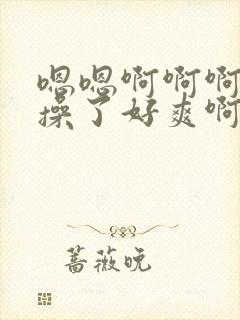 嗯嗯啊啊啊
操了好爽啊
蔷薇晓